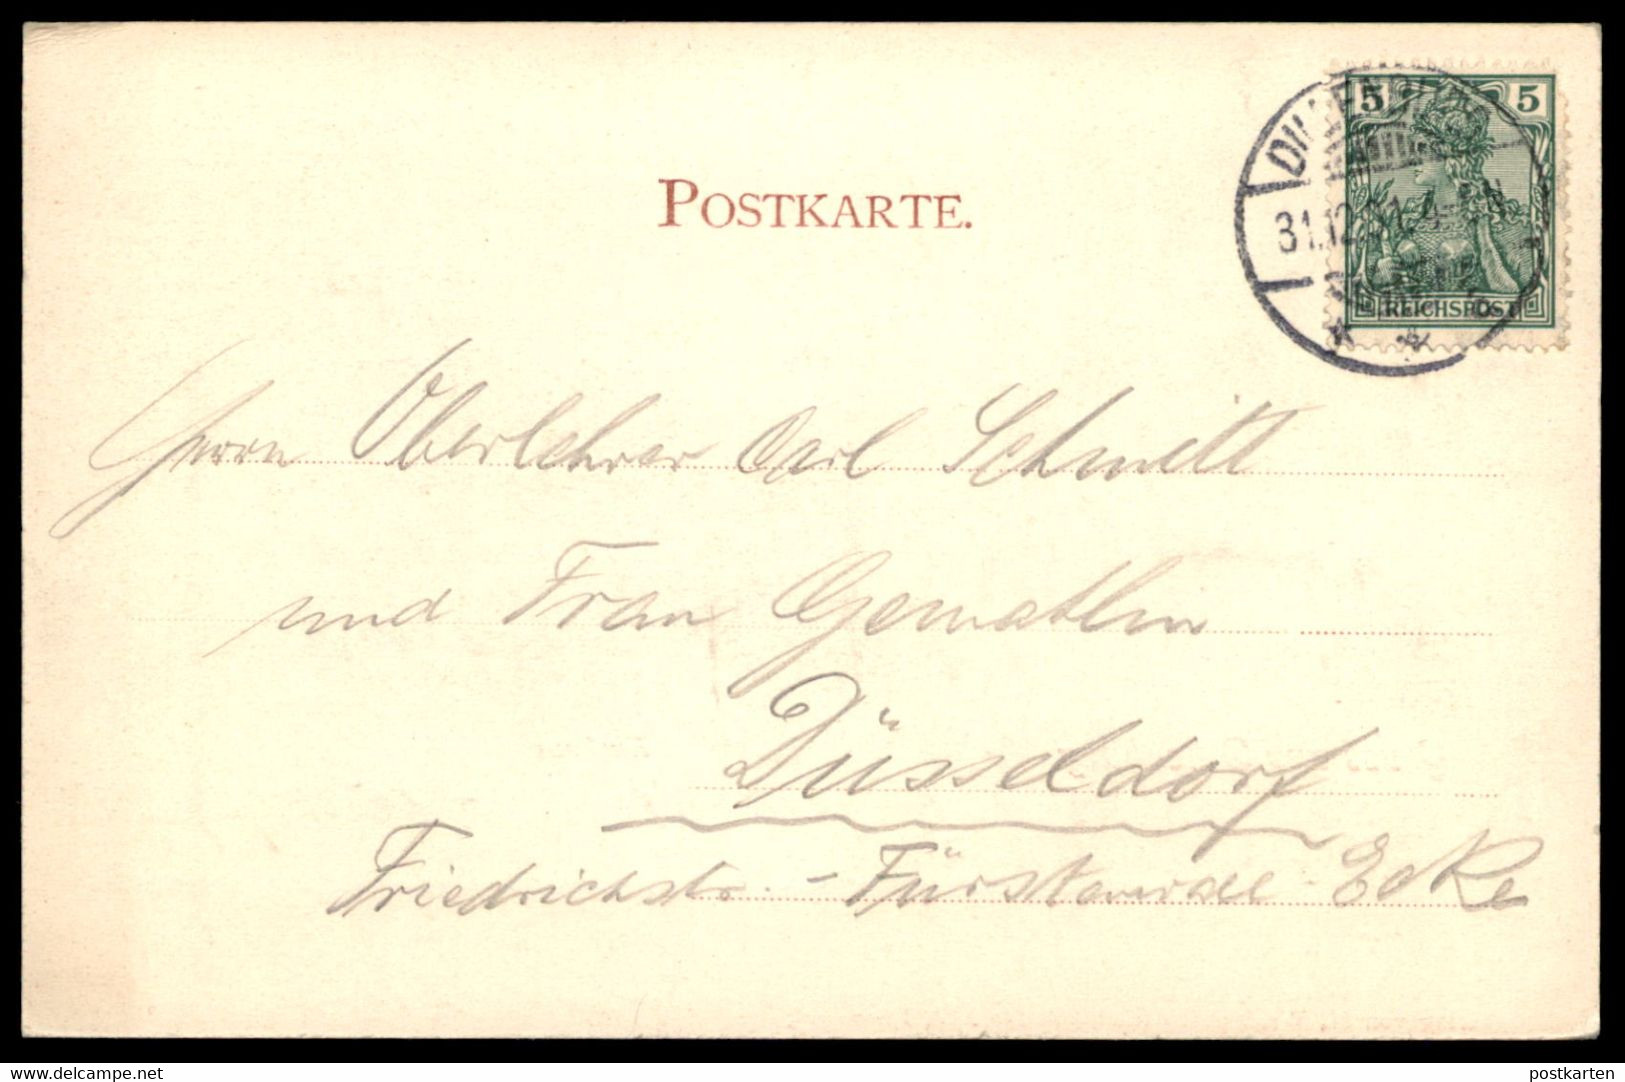 POSTKARTE.
5 5
DILLENBURG
31.12.01
REICHSPOST
Herrn Oberlehrer Carl Schmitt
und Frau Gemahlin
Düsseldorf
Friedrichstr. - Fürstenwall Ecke
www.delcampe.net
postkarten